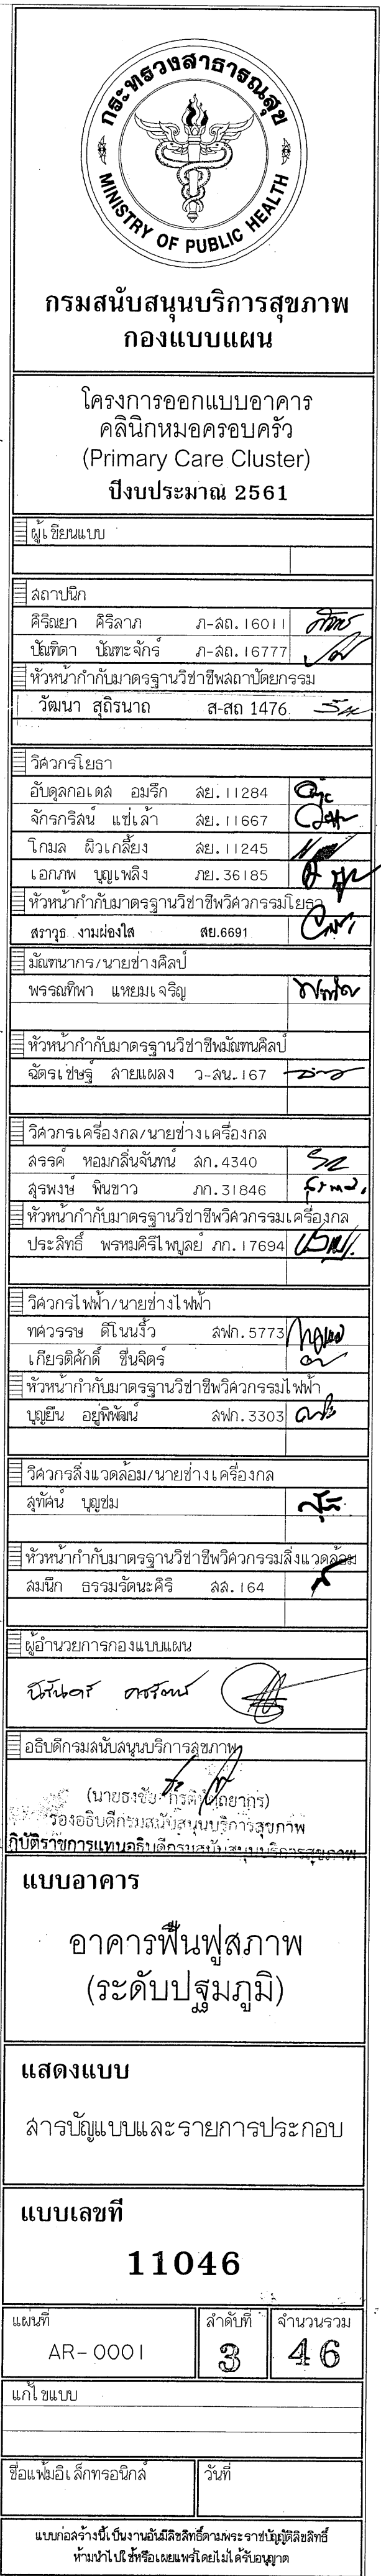 กระทรวงสาธารณสุข
MINISTRY OF PUBLIC HEALTH
กรมสนับสนุนบริการสุขภาพ
กองแบบแผน
โครงการออกแบบอาคาร
คลินิกหมอครอบครัว
(Primary Care Cluster)
ปีงบประมาณ 2561
ผู้เขียนแบบ
สถาปนิก
ศิริณยา ศิริลาภ ภ-สถ.16011
ปัณฑิตา ปัณฑะจักร์ ภ-สถ.16777
หัวหน้ากำกับมาตรฐานวิชาชีพสถาปัตยกรรม
วัฒนา สุถิรนาถ ส-สถ 1476
วิศวกรโยธา
อับดุลกอเดส อมรึก สย.11284
จักรกริสน์ แซ่เล้า สย.11667
โกมล ผิวเกลี้ยง สย.11245
เอกภพ บุญเพลิง ภย.36185
หัวหน้ากำกับมาตรฐานวิชาชีพวิศวกรรมโยธา
สราวุธ งามผ่องใส สย.6691
มัณฑนากร/นายช่างศิลป์
พรรณทิพา แหยมเจริญ
หัวหน้ากำกับมาตรฐานวิชาชีพมัณฑนศิลป์
ฉัตรเชษฐ์ สายแผลง ว-สน.167
วิศวกรเครื่องกล/นายช่างเครื่องกล
สรรค์ หอมกลิ่นจันทน์ สก.4340
สุรพงษ์ พินขาว ภก.31846
หัวหน้ากำกับมาตรฐานวิชาชีพวิศวกรรมเครื่องกล
ประสิทธิ์ พรหมคีรีไพบูลย์ ภก.17694
วิศวกรไฟฟ้า/นายช่างไฟฟ้า
ทศวรรษ ดีโนนงิ้ว สฟก.5773
เกียรติศักดิ์ ชื่นจิตร์
หัวหน้ากำกับมาตรฐานวิชาชีพวิศวกรรมไฟฟ้า
บุญยืน อยู่พิพัฒน์ สฟก.3303
วิศวกรสิ่งแวดล้อม/นายช่างเครื่องกล
สุทัศน์ บุญชม
หัวหน้ากำกับมาตรฐานวิชาชีพวิศวกรรมสิ่งแวดล้อม
สมนึก ธรรมรัตนะคิริ สส.164
ผู้อำนวยการกองแบบแผน
อธิบดีกรมสนับสนุนบริการสุขภาพ
(นายธงชัย
รองอธิบดีกรมสนับสนุนบริการสุขภาพ
ปฏิบัติราชการแทนอธิบดีกรมสนับสนุนบริการสุขภาพ
แบบอาคาร
อาคารฟื้นฟูสภาพ
(ระดับปฐมภูมิ)
แสดงแบบ
สารบัญแบบและรายการประกอบ
แบบเลขที่
11046
แผ่นที่ ลำดับที่ จำนวนรวม
AR-0001 3 46
แก้ไขแบบ
ชื่อแฟ้มอิเล็กทรอนิกส์ วันที่
แบบก่อสร้างนี้เป็นงานอันมีลิขสิทธิ์ตามพระราชบัญญัติลิขสิทธิ์
ห้ามนำไปใช้หรือเผยแพร่โดยไม่ได้รับอนุญาต